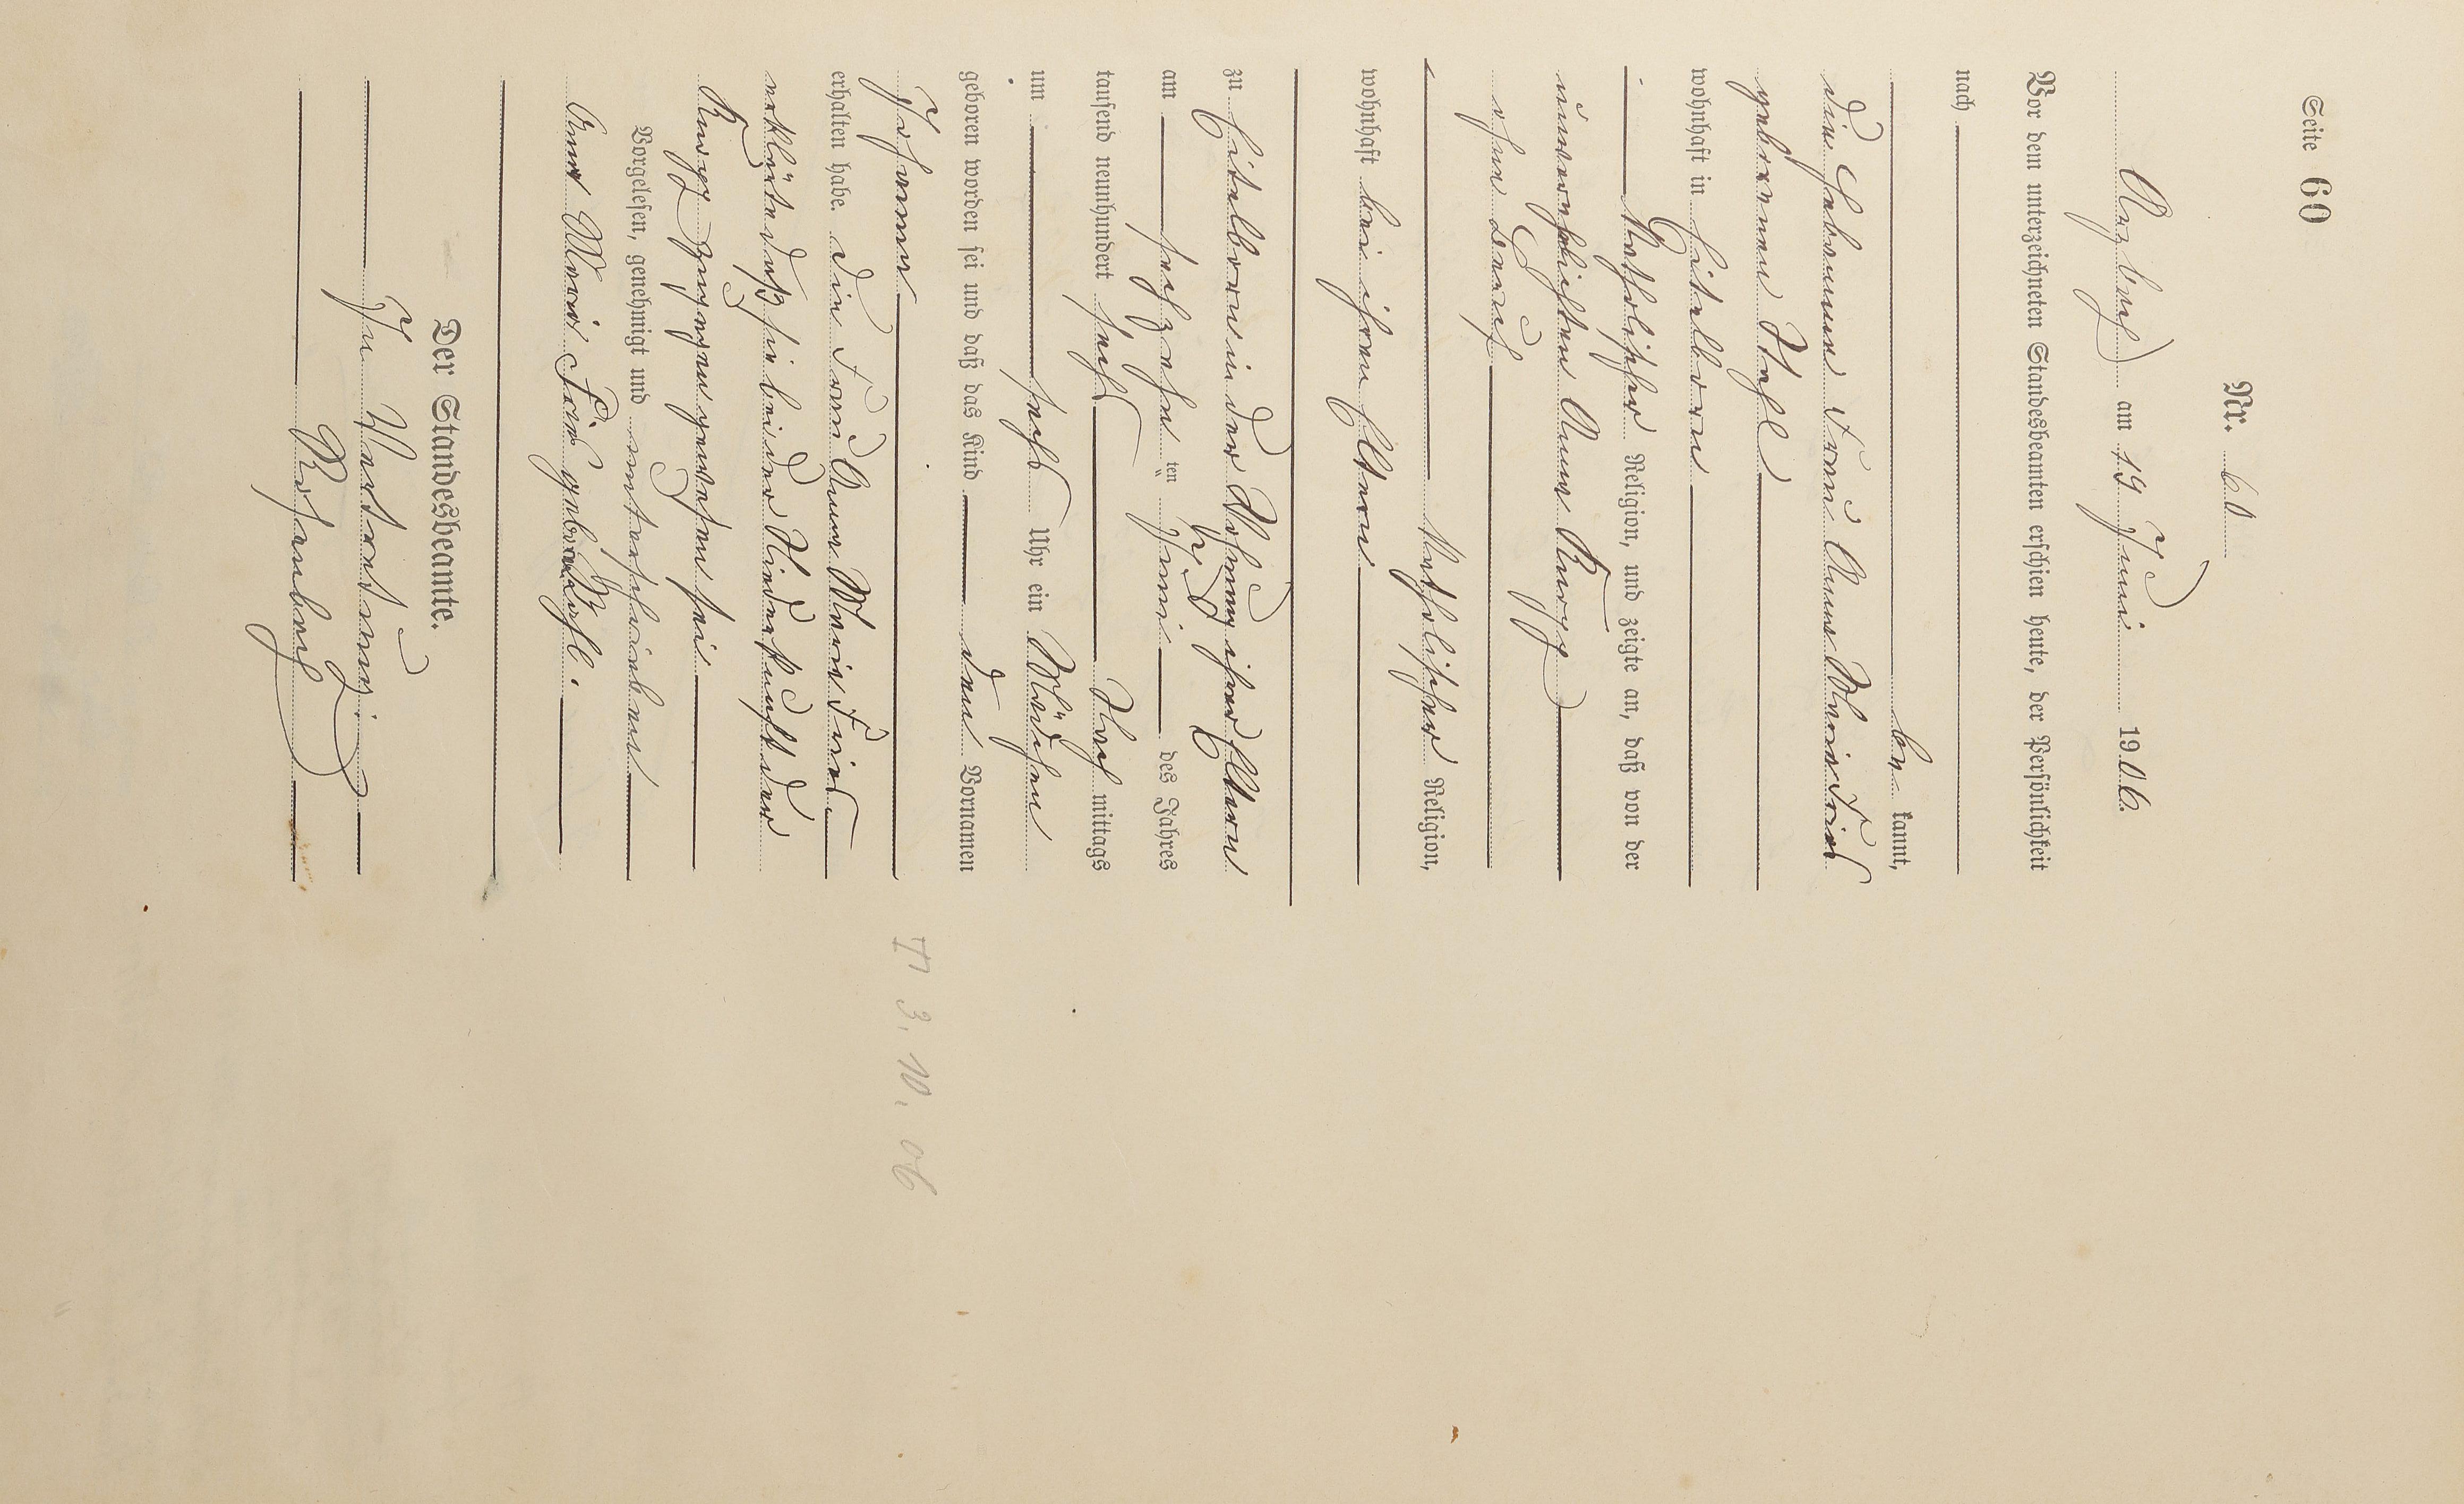 Seite 60
Nr. 60
Arzbach am 19 Juni 1906.
Vor dem unterzeichneten Standesbeamten erschien heute, der Persönlichkeit
nach
be kannt,
die Hebamme Frau Anna Maria
geborenen Stahl
wohnhaft in Eitelborn
Katholischer Religion, und zeigte an, daß von der
unverehelichten Anna Knopp
ohne Beruf
Katholischer Religion,
wohnhaft bei ihren Eltern
zu Eitelborn in der Wohnung ihrer Eltern
am sechzehn ten Juni des Jahres
tausend neunhundert sechs Nach mittags
um sechs Uhr ein Mädchen
geboren worden sei und daß das Kind den Vornamen
Johanna
erhalten habe. Die Frau Anna Maria
erklärte daß sie bei der Niederkunft der
Knopp zugegen gewesen sei
Vorgelesen, genehmigt und unterschrieben
Anna Maria
Der Standesbeamte.
In Vertretung.
† 3. 10. 06